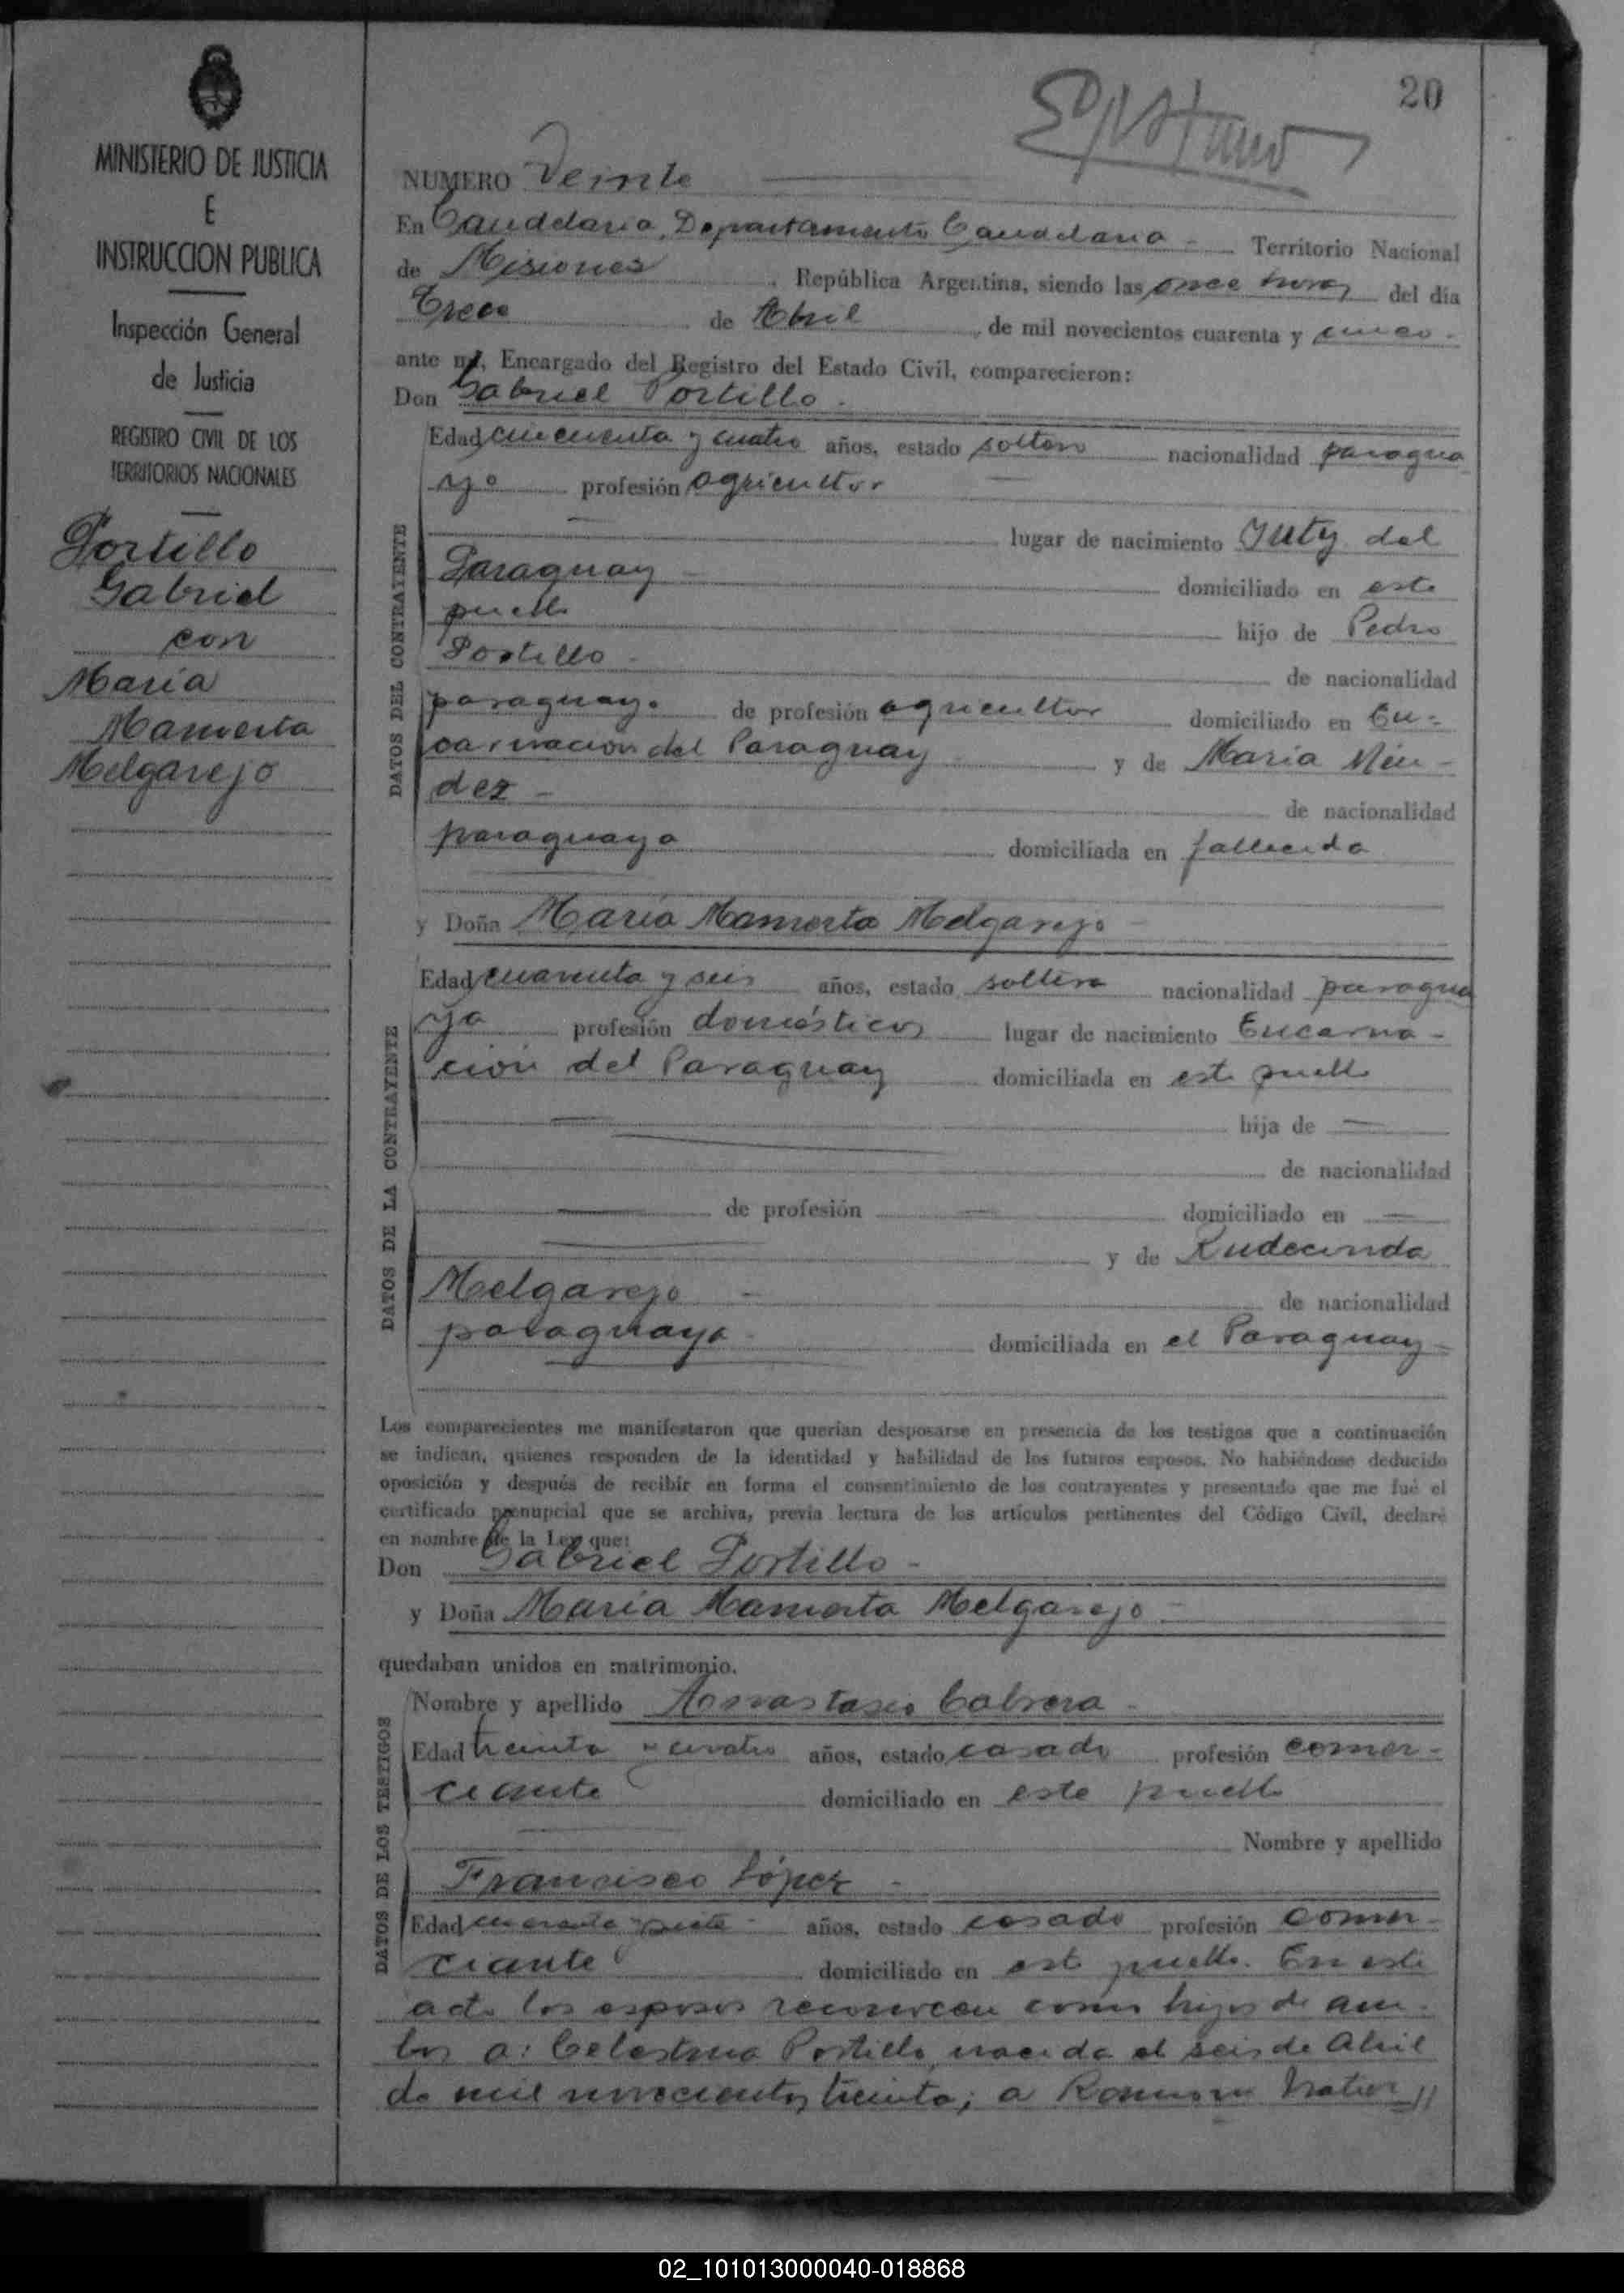 20
MINISTERIO DE JUSTICIA
E
INSTRUCCION PUBLICA
Inspección General
de Justicia
REGISTRO CIVIL DE LOS
TERRITORIOS NACIONALES
Portillo
Gabriel
con
María
Mamerta
Melgarejo
NUMERO Veinte
En Candelaria, Departamento Candelaria - Territorio Nacional
de Misiones, República Argentina, siendo las once horas del día
Trece de Abril, de mil novecientos cuarenta y cinco -
ante mí, Encargado del Registro del Estado Civil, comparecieron:
Don Gabriel Portillo -
DATOS DEL CONTRAYENTE
Edad cincuenta y cuatro años, estado soltero nacionalidad paragua
yo profesión agricultor
lugar de nacimiento Yuty del
Paraguay - domiciliado en este
pueblo hijo de Pedro
Portillo - de nacionalidad
paraguayo de profesión agricultor domiciliado en En-
carnación del Paraguay y de María Mén-
dez - de nacionalidad
paraguaya domiciliada en fallecida
y Doña María Mamerta Melgarejo -
DATOS DE LA CONTRAYENTE
Edad cuarenta y seis años, estado soltera nacionalidad paragua
ya profesión domésticos lugar de nacimiento Encarna-
ción del Paraguay domiciliada en este pueblo
hija de
de nacionalidad
de profesión domiciliado en
y de Rudecinda
Melgarejo - de nacionalidad
paraguaya domiciliada en el Paraguay -
Los comparecientes me manifestaron que querían desposarse en presencia de los testigos que a continuación
se indican, quienes responden de la identidad y habilidad de los futuros esposos. No habiéndose deducido
oposición y después de recibir en forma el consentimiento de los contrayentes y presentado que me fué el
certificado prenupcial que se archiva, previa lectura de los artículos pertinentes del Código Civil, declaré
en nombre de la Ley que:
Don Gabriel Portillo -
y Doña María Mamerta Melgarejo -
quedaban unidos en matrimonio.
DATOS DE LOS TESTIGOS
Nombre y apellido Anastasio Cabrera -
Edad treinta y cuatro años, estado casado profesión comer-
ciante domiciliado en este pueblo
Nombre y apellido
Francisco López -
Edad cuarenta y siete - años, estado casado profesión comer-
ciante domiciliado en este pueblo. En este
acto los esposos reconocen como hijos de am-
bos a: Celestina Portillo, nacida el seis de Abril
de mil novecientos treinta; a
02_101013000040-018868